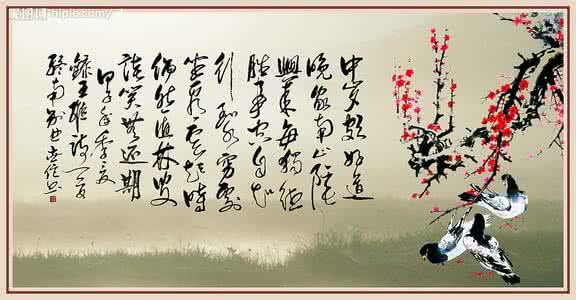 中岁颇好道
晚家南山陲
兴来每独往
胜事空自知
行到水穷处
坐看云起时
偶然值林叟
谈笑无还期
录王维诗一首
终南别业